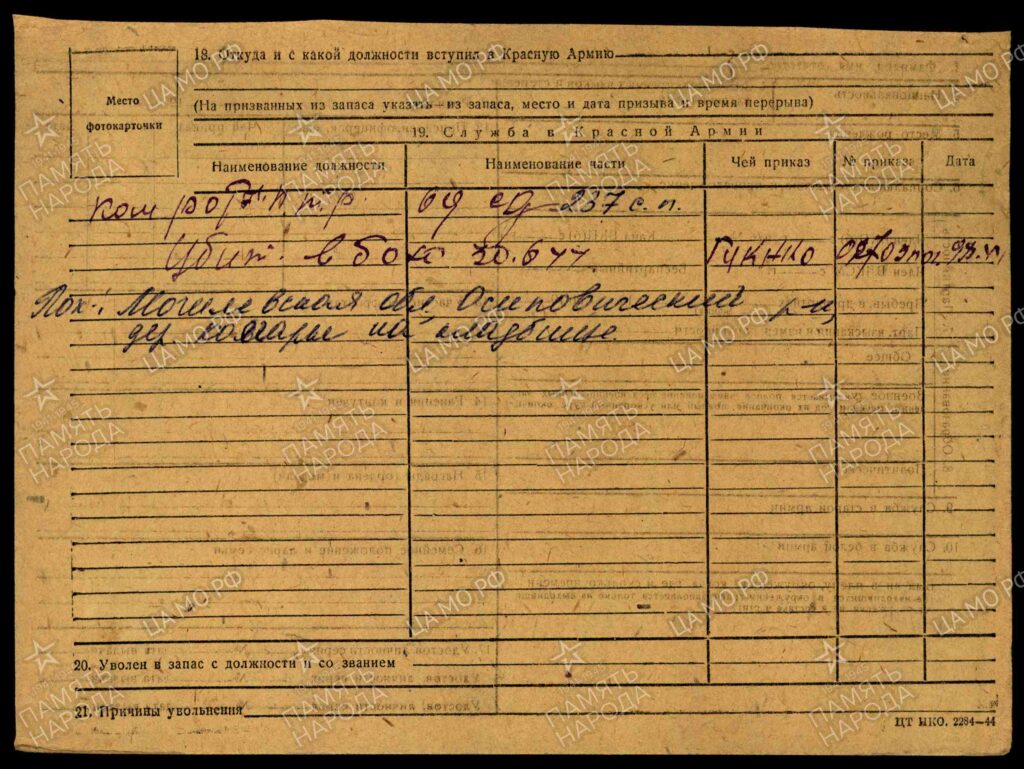 18. Откуда и с какой должности вступил в Красную Армию
Место
фотокарточки
(На призванных из запаса указать—из запаса, место и дата призыва и время перерыва)
19. Служба в Красной Армии
Наименование должности Наименование части Чей приказ № приказа Дата
ком роты птр. 69 сд 237 с. п.
Убит в бою 30.6 44 ГУК НКО
Пох-: Могилевская обл. Осиповический р-н
дер на кладбище.
20. Уволен в запас с должности и со званием
21. Причины увольнения
ЦТ НКО. 2284—44
ПАМЯТЬ
НАРОДА
ЦАМО.РФ